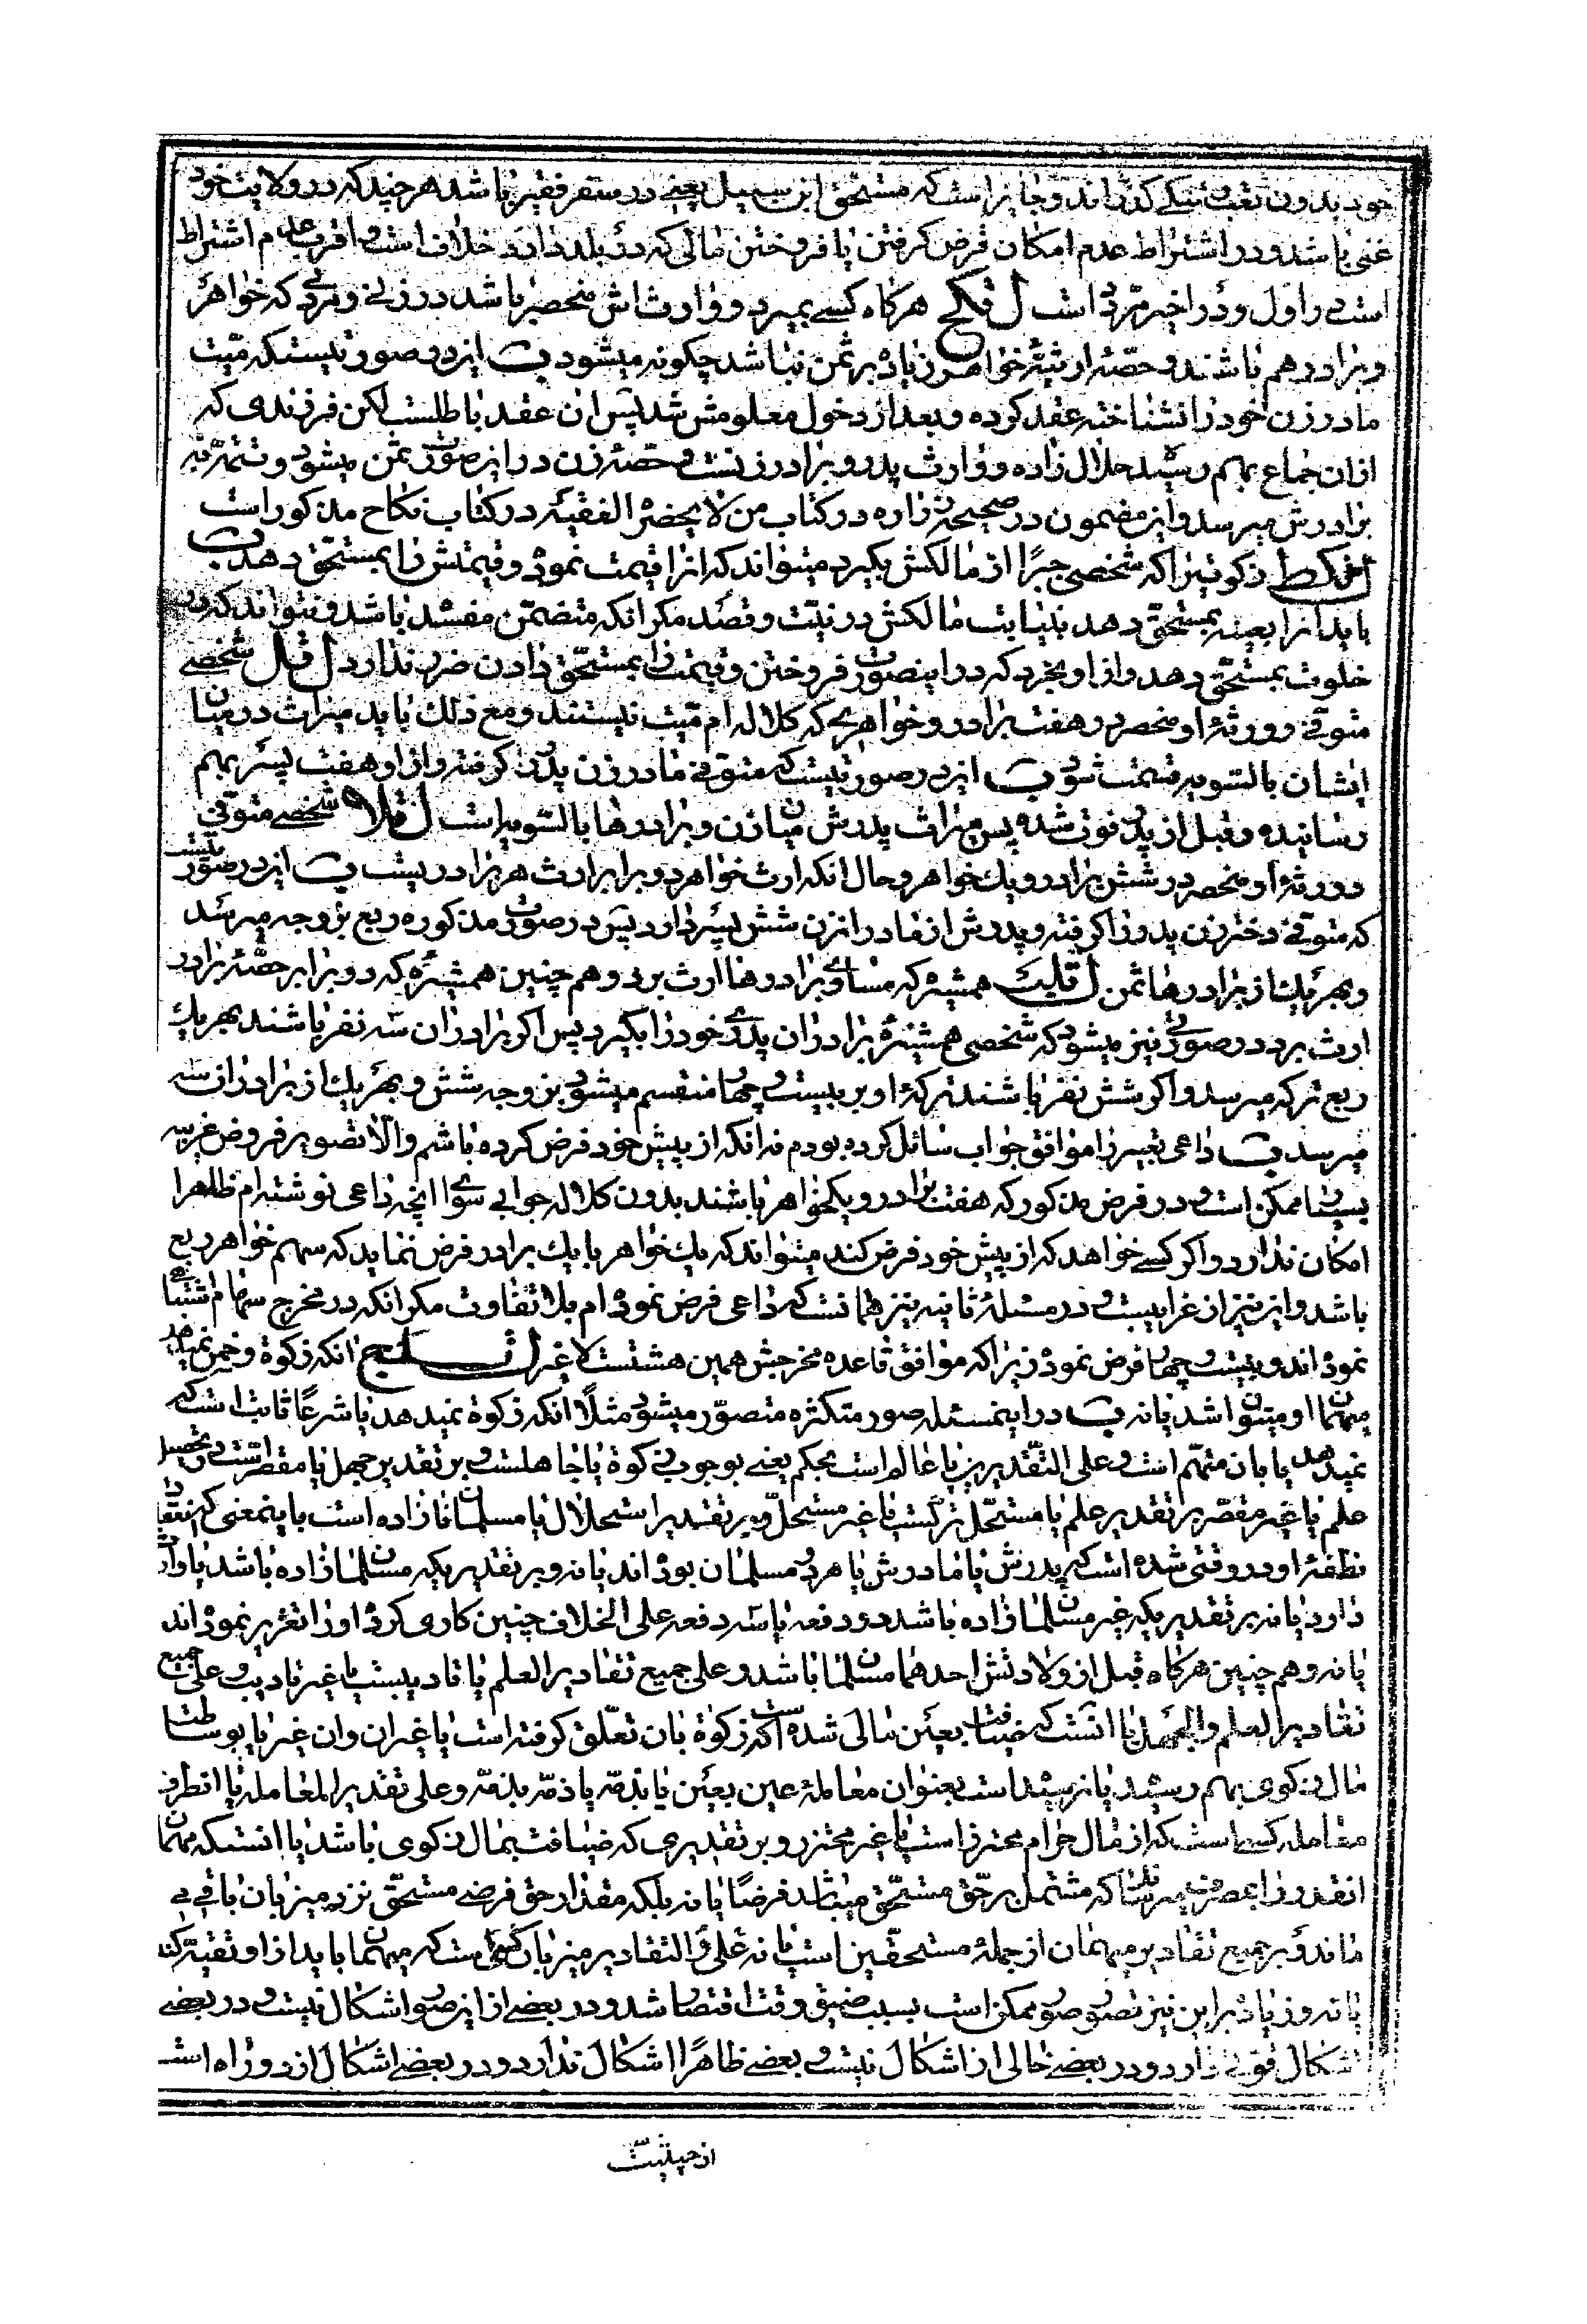 خود بدون تعب و تنگی گذراند و جایز است که مستحق ابن سبیل یعنی در سفر فقیر باشد هر چند که در ولایت خود
غنی باشد و در اشتراط عدم امکان قرض گرفتن یا فروختن مالی که در بلد دارد خلاف است و اقرب عدم اشتراط
است در اول و در اخیر مرّدد است ل هرگاه کسی بمیرد و وارث اش منحصر باشد در زنی و مردی که خواهر
و برادر هم باشند و حصّهٔ ارثیهٔ خواهر زیاد بر ثمن نباشد چگونه میشود ت این در صورتیست که میّت
مادر زن خود را نشناخته عقد کرده و بعد از دخول معلومش شد پس ان عقد باطلست لکن فرزندی که
از ان جماع بهم رسید حلال زاده و وارث پدر و برادر زنست و حصهٔ زن در این صورت ثمن میشود و تتمّه به
برادرش میرسد و این مضمون در صحیحهٔ زراره در کتاب من لا یحضره الفقیه در کتاب نکاح مذکور است
زکوتیرا که شخصی جبرًا از مالکش بگیرد میتواند که انرا قیمت نموده و قیمتش را بمستحق دهد ت
باید انرا بعینه بمستحق دهد بنیابت مالکش در نیّت و قصد مگر انکه متضمّن مفسده باشد و نتواند که در
خلوت بمستحق دهد و از او بخرد که در اینصورت فروختن و قیمت را بمستحق دادن ضرر ندارد ل شخصی
متوفی و ورثهٔ او منحصر در هفت برادر و خواهری که کلاله ام میّت نیستند و مع ذلک باید میراث در میان
ایشان بالسّویه قسمت شود ت این در صورتیست که متوفی مادر زن پدرش گرفته و از او هفت پسر بهم
رسانیده و قبل از پدر فوت شده پس میراث پدرش میان زن و برادرها بالسّویه است ل شخصی متوفی
و ورثهٔ او منحصر در شش برادر و یک خواهر و حال انکه ارث خواهر دو برابر ارث هر برادریست ت این در صورتیست
که متوفی دختر زن پدر را گرفته و پدرش از مادر ان زن شش پسر دارد پس در صورت مذکوره ربع بزوجه میرسد
و بهر یک از برادرها ثمن ل همشیره که مساوی برادرها ارث برد و هم چنین همشیره که دو برابر حصّهٔ برادر
ارث برد در صورتی نیز میشود که شخصی همشیرهٔ برادران پدری خود را بگیرد پس اگر برادران سه نفر باشند بهر یک
ربع ترکه میرسد و اگر شش نفر باشند ترکهٔ او بر بیست و چهار منقسم میشود بزوجه شش و بهر یک از برادران سه
میرسد ت داعی تعبیر را موافق جواب سائل کرده بودم نه انکه از پیش خود فرض کرده باشم و الّا تصویر فروض غریبه
بسیار ممکن است و در فرض مذکور که هفت برادر و یکخواهر باشند بدون کلاله جوابی سوای انچه داعی نوشته ام ظاهرا
امکان ندارد و اگر کسی خواهد که از پیش خود فرض کند میتواند که یک خواهر با یک برادر فرض نماید که سهم خواهر ربع
باشد و این نیز از غرایبست و در مسئلهٔ ثانیه نیز همانست که داعی فرض نموده ام بلا تفاوت مگر انکه در مخرج سهام اشتباهی
نموده اند و بیست و چهار فرض نموده زیرا که موافق قاعده مخرجش همین هشتست لا غیر ل انکه زکوة و خمس نمیدهد
میهمان او میتوان شد یا نه ت در اینمسئله صور متکثره متصوّر میشود مثلًا انکه زکوة نمیدهد یا شرعًا ثابت است که
نمیدهد یا بان متهّم است و علی التّقدیرین یا عالم است بحکم یعنی بوجوب زکوة یا جاهلست و بر تقدیر جهل یا مقصّر است در تحصیل
علم یا غیر مقصّر بر تقدیر علم یا مستحلّ ترکست یا غیر مستحلّ و بر تقدیر استحلال یا مسلمان زاده است باینمعنی که انعقاد
نطفهٔ او در وقتی شده است که پدرش یا مادرش یا هر دو مسلمان بوده اند یا نه و بر تقدیریکه مسلمان زاده باشد یا وارث
دارد یا نه بر تقدیریکه غیر مسلمان زاده باشد دو دفعه یا سه دفعه علی الخلاف چنین کاری کرده او را تعزیر نموده اند
یا نه و هم چنین هرگاه قبل از ولادتش احدهما مسلمان باشد و علی جمیع تقادیر العلم یا تادیبست یا غیر تادیب و علی جمیع
تقادیر العلم و الجهل یا انست که ضیافت بعین مالی شده است که زکوة بان تعلّق گرفته است یا غیر ان و ان غیر یا بوساطت
مال زکوی بهم رسیده یا نرسیده است بعنوان معاملهٔ عین بعین یا بذمّه یا ذمّه بذمّه و علی تقدیر المعامله یا انطرف
معامله کسی است که از مال حرام محترز است یا غیر محترز و بر تقدیری که ضیافت بمال زکوی باشد یا انستکه میهمان
انقدر را بمصرف میرساند که مشتمل بر حق مستحّق میباشد فرضًا یا نه بلکه مقدار حق فرضی مستحّق نزد میزبان باقی می
ماند و بر جمیع تقادیر میهمان از جملهٔ مستحقّین است یا نه و علی التقادیر میزبان کسی است که میهمان باید از او تقیّه کند
یا نه و زیاده بر این نیز تصوّر صور ممکن است بسبب ضیق وقت اقتصار شد و در بعضی از این صور اشکال نیست و در بعضی
اشکال قوی دارد و در بعضی خالی از اشکال نیست و بعضی ظاهرًا اشکال ندارد و در بعضی اشکال از دو راه است
از حیثیت